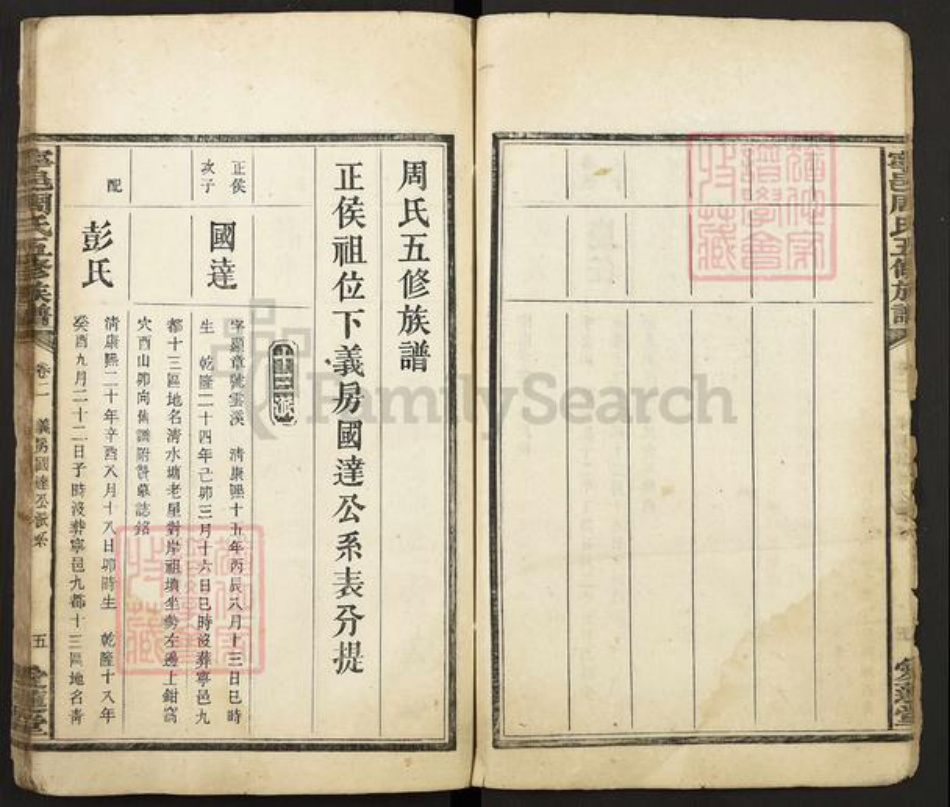 寧邑周氏五修族譜
愛蓮堂
周氏五修族譜
正侯祖位下義房國達公系表分提
十三派
正侯
次子
國達
字顯章號雲溪 清康熙十五年丙辰八月十三日巳時
生 乾隆二十四年己卯三月十六日巳時沒葬寧邑九
都十三區地名清水塘老屋對岸祖墳坐勢左邊上鉗窩
穴酉山卯向舊譜附贊墓誌銘
配
彭氏
清康熙二十年辛酉八月十八日卯時生 乾隆十八年
癸酉九月二十二日子時沒葬寧邑九都十三區地名青
寧邑周氏五修族譜
卷二
義房國達公派系
五
愛蓮堂
收藏
FamilySearch